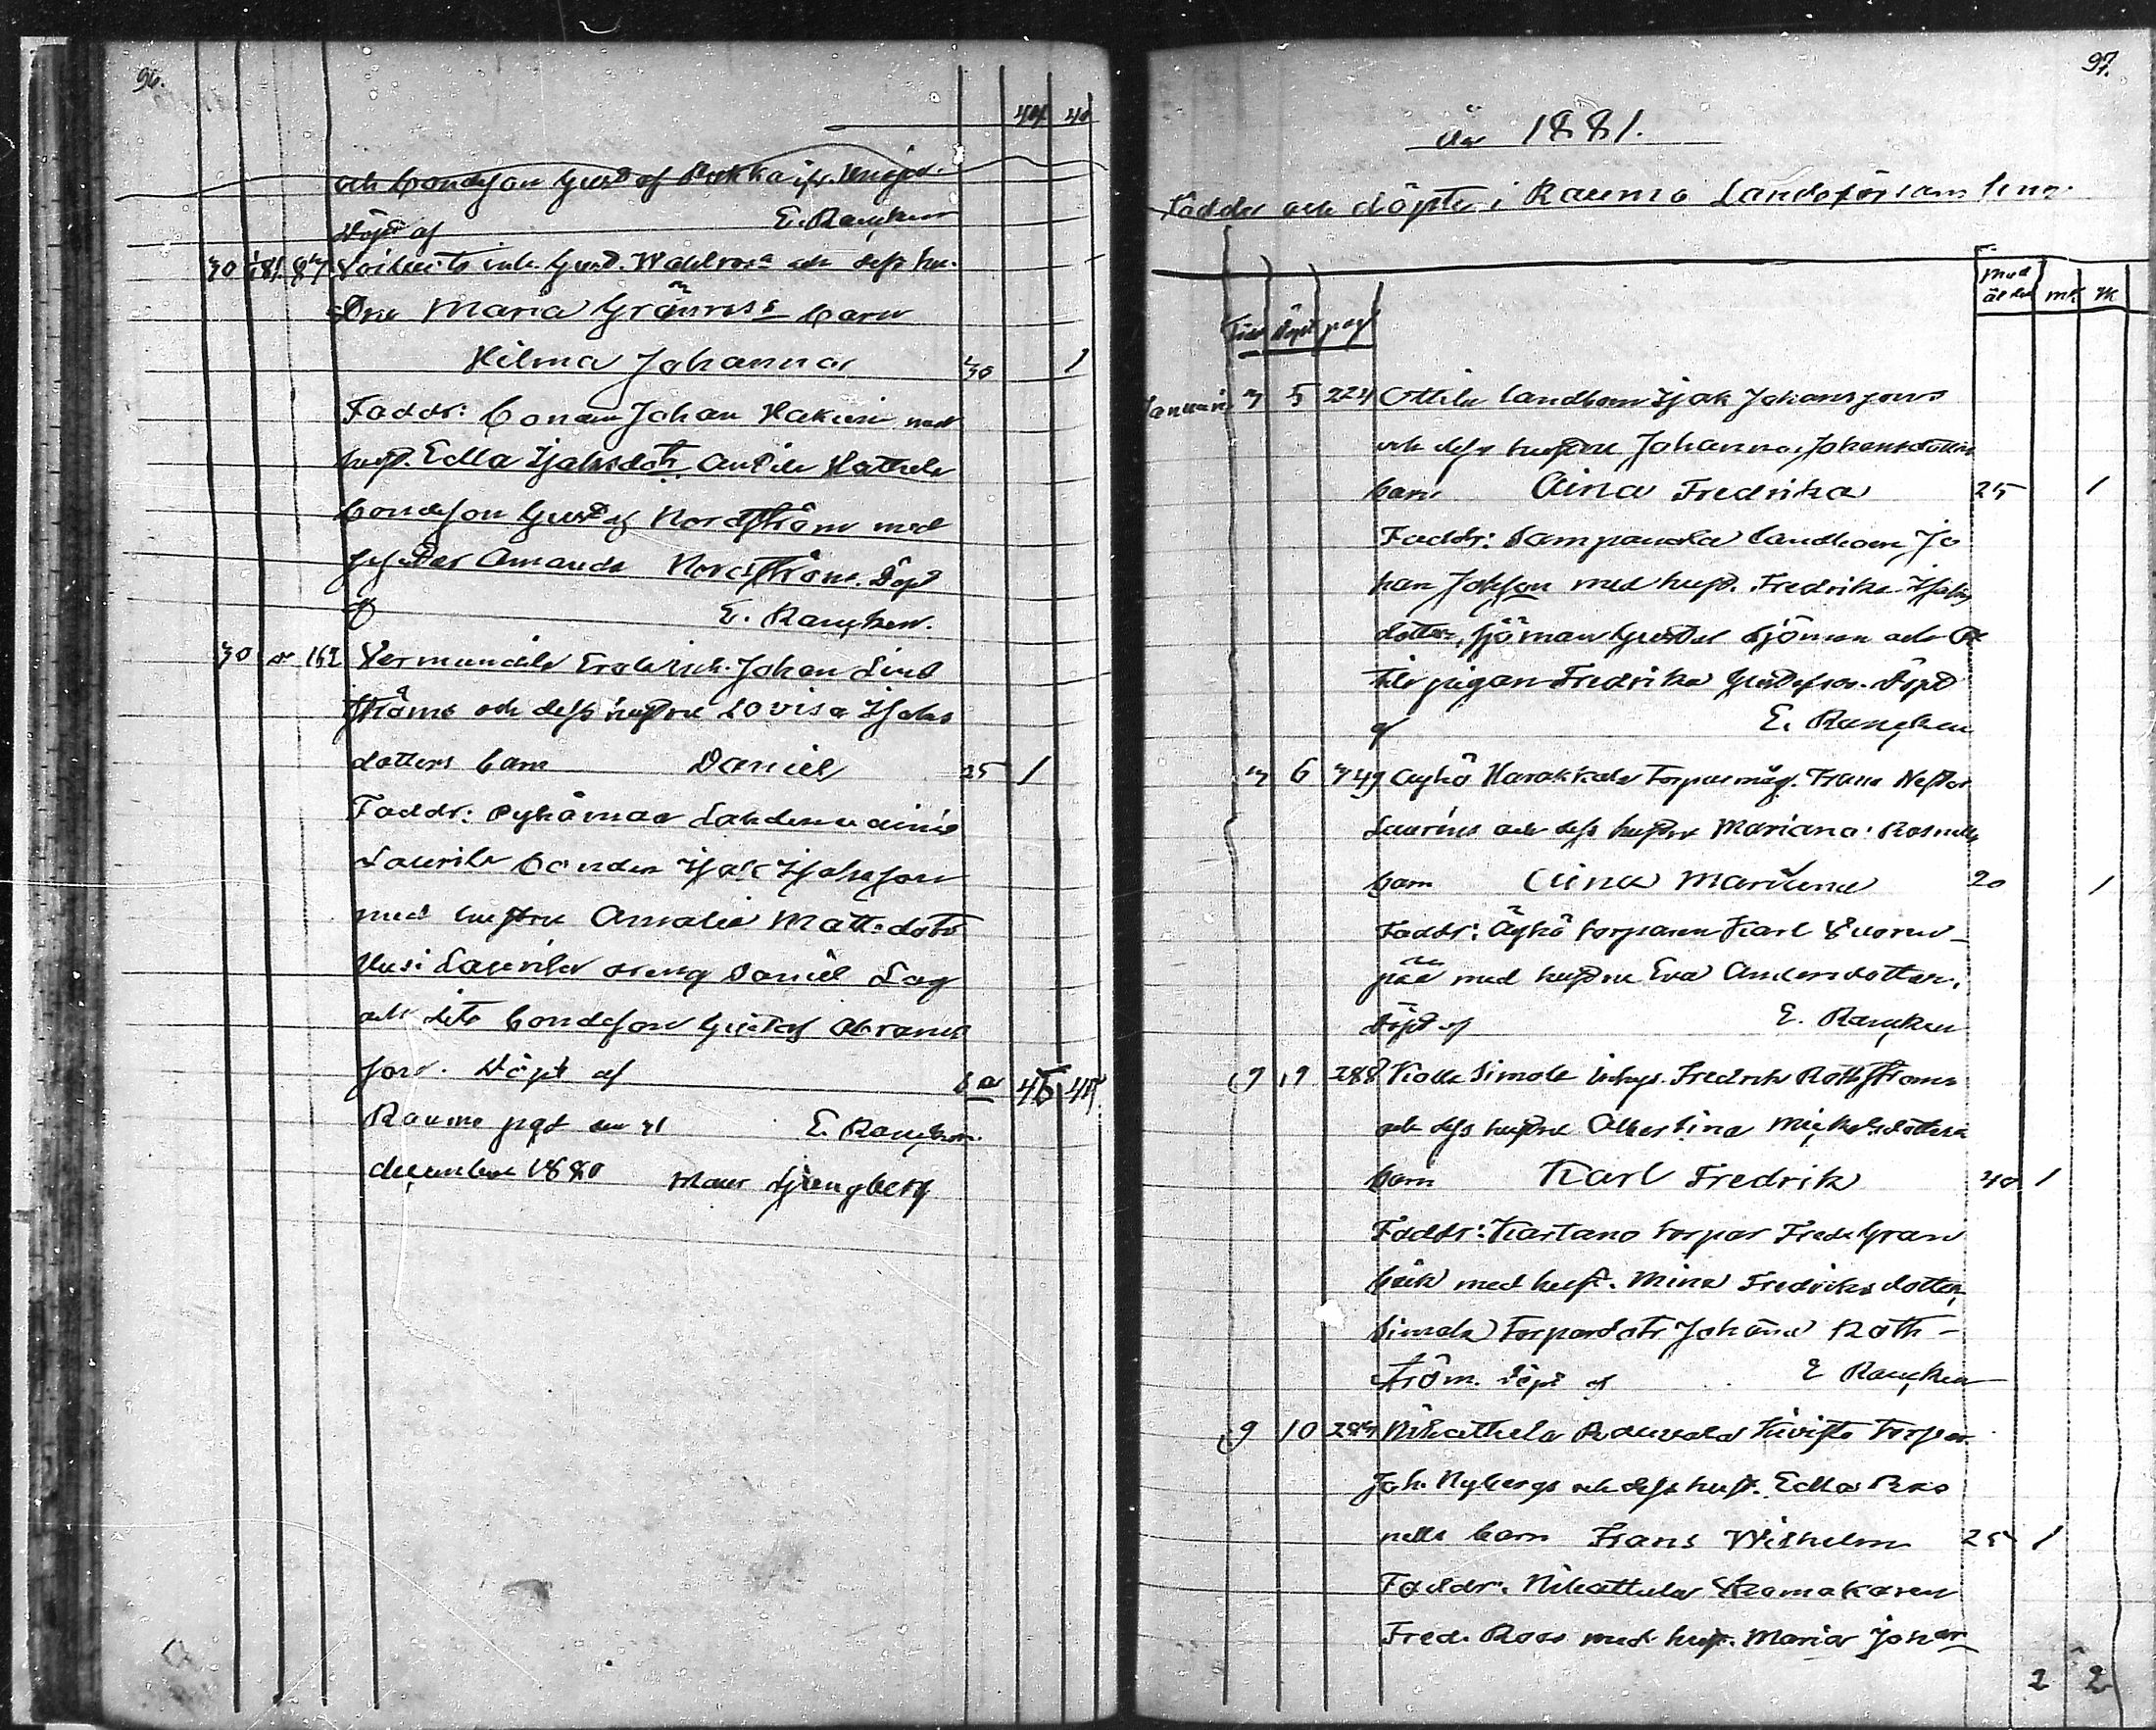 96.
44 40
och bondeson Gustaf Rokka ifr. Unaja.
Döpt af E. Rancken
30 1/81 87 Voiluoto inh. Gust. Wahlroos och dess hu-
stru Maria Grönroos barn
Hilma Johanna 30 1
Faddr: bonden Johan Hakuni med
hust. Edla Isaksdotr
bondeson Gustaf Nordström med
Amanda Nordström. Döpt
af E. Rancken.
30 162 Vermundila Johan Lind
ströms och dess hustru Lovisa Isaks
dotters barn Daniel 25 1
Faddr: Pyhämaa
Laurila bonden Isak Isaksson
med hustru Amalia Matts dotr
Uusi Laurila dreng Daniel Lag
och dito bondeson Gustaf Abrams
son. Döpt af 45 45
Raumo pgd den 31 E. Rancken.
december 1880 Ljungberg
97.
år 1881.
Födde och döpte i Raumo Landsförsamling.
Mod
ålder mk. qk
Född Döpt pag
Januari 3 5 224 Ottila landbon Isak Johanssons
och dess hustru Johanna Johansdotters
barn Aina Fredrika 25 1
Faddr: Sampanala landboen Jo
han Jaksson med hust. Fredrika Isaks
dotter, sjöman Gustaf Sjöman och Ot
tila pigan Fredrika Gustafsdr. Döpt
af E. Rancken
3 6 349 Äyhö Harakkala Torparmåg. Frans Nestor
Laurins och dess hustru Mariana Rosnells
barn Aina Mariana 20 1
Faddr: Äyhö torparen Karl Vuoren-
pää med hustru Eva Andersdotter.
Döpt af E. Rancken
9 9 288 Kolla Simola inhys. Fredrik Rothströms
och dess hustru Albertina Mickelsdotters
barn Karl Fredrik 40 1
Faddr: Kartano torpar Fredr. Gran
bäck med hust. Mina Fredriks dotter,
Simola Torpardotr Johanna Roth-
ström. Döpt af E Rancken
9 10 284 Nihattula Rauvola Kivistö torpar
Joh. Nybergs och dess hust. Edla Ros
nells barn Frans Wilhelm 25 1
Faddr: Nihattula
Fred. Roos med hust. Maria Johan
2 2